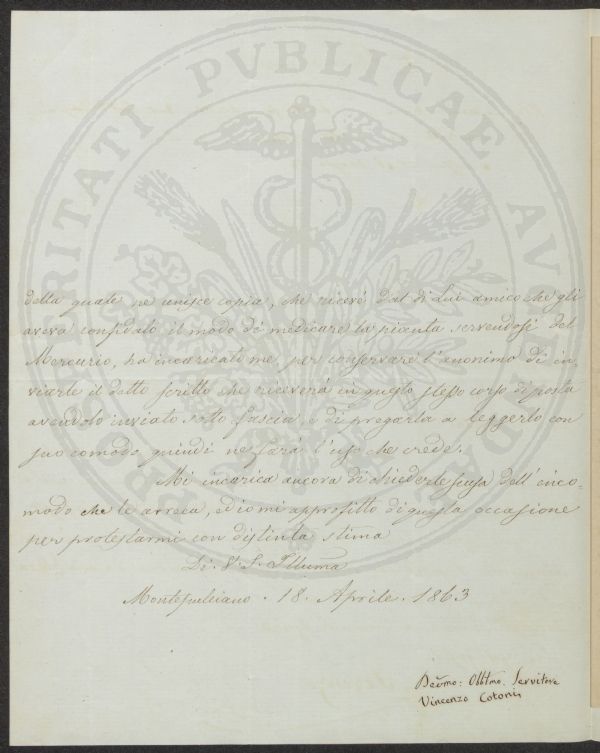 PROSPERITATI PVBLICAE AVGENDAE
della quale ne unisce copia, che ricevé dal di Lui amico che gli
aveva confidato il modo di medicare la pianta servendosi del
Mercurio, ha incaricato me per conservare l'anonimo di in-
viarle il detto scritto che riceverà in questo stesso corso di posta
avendolo inviato sotto fascia, e di pregarla a leggerlo con
suo comodo, quindi ne farà l'uso che crede.
Mi incarica ancora di chiederle scusa dell'inco=
modo che le arreca, ed io mi approfitto di questa occasione
per protestarmi con distinta stima
Di. V. S. Illuma
Montepulciano . 18 . Aprile . 1863
Devmo: Obbtmo. Servitore
Vincenzo Cotonis